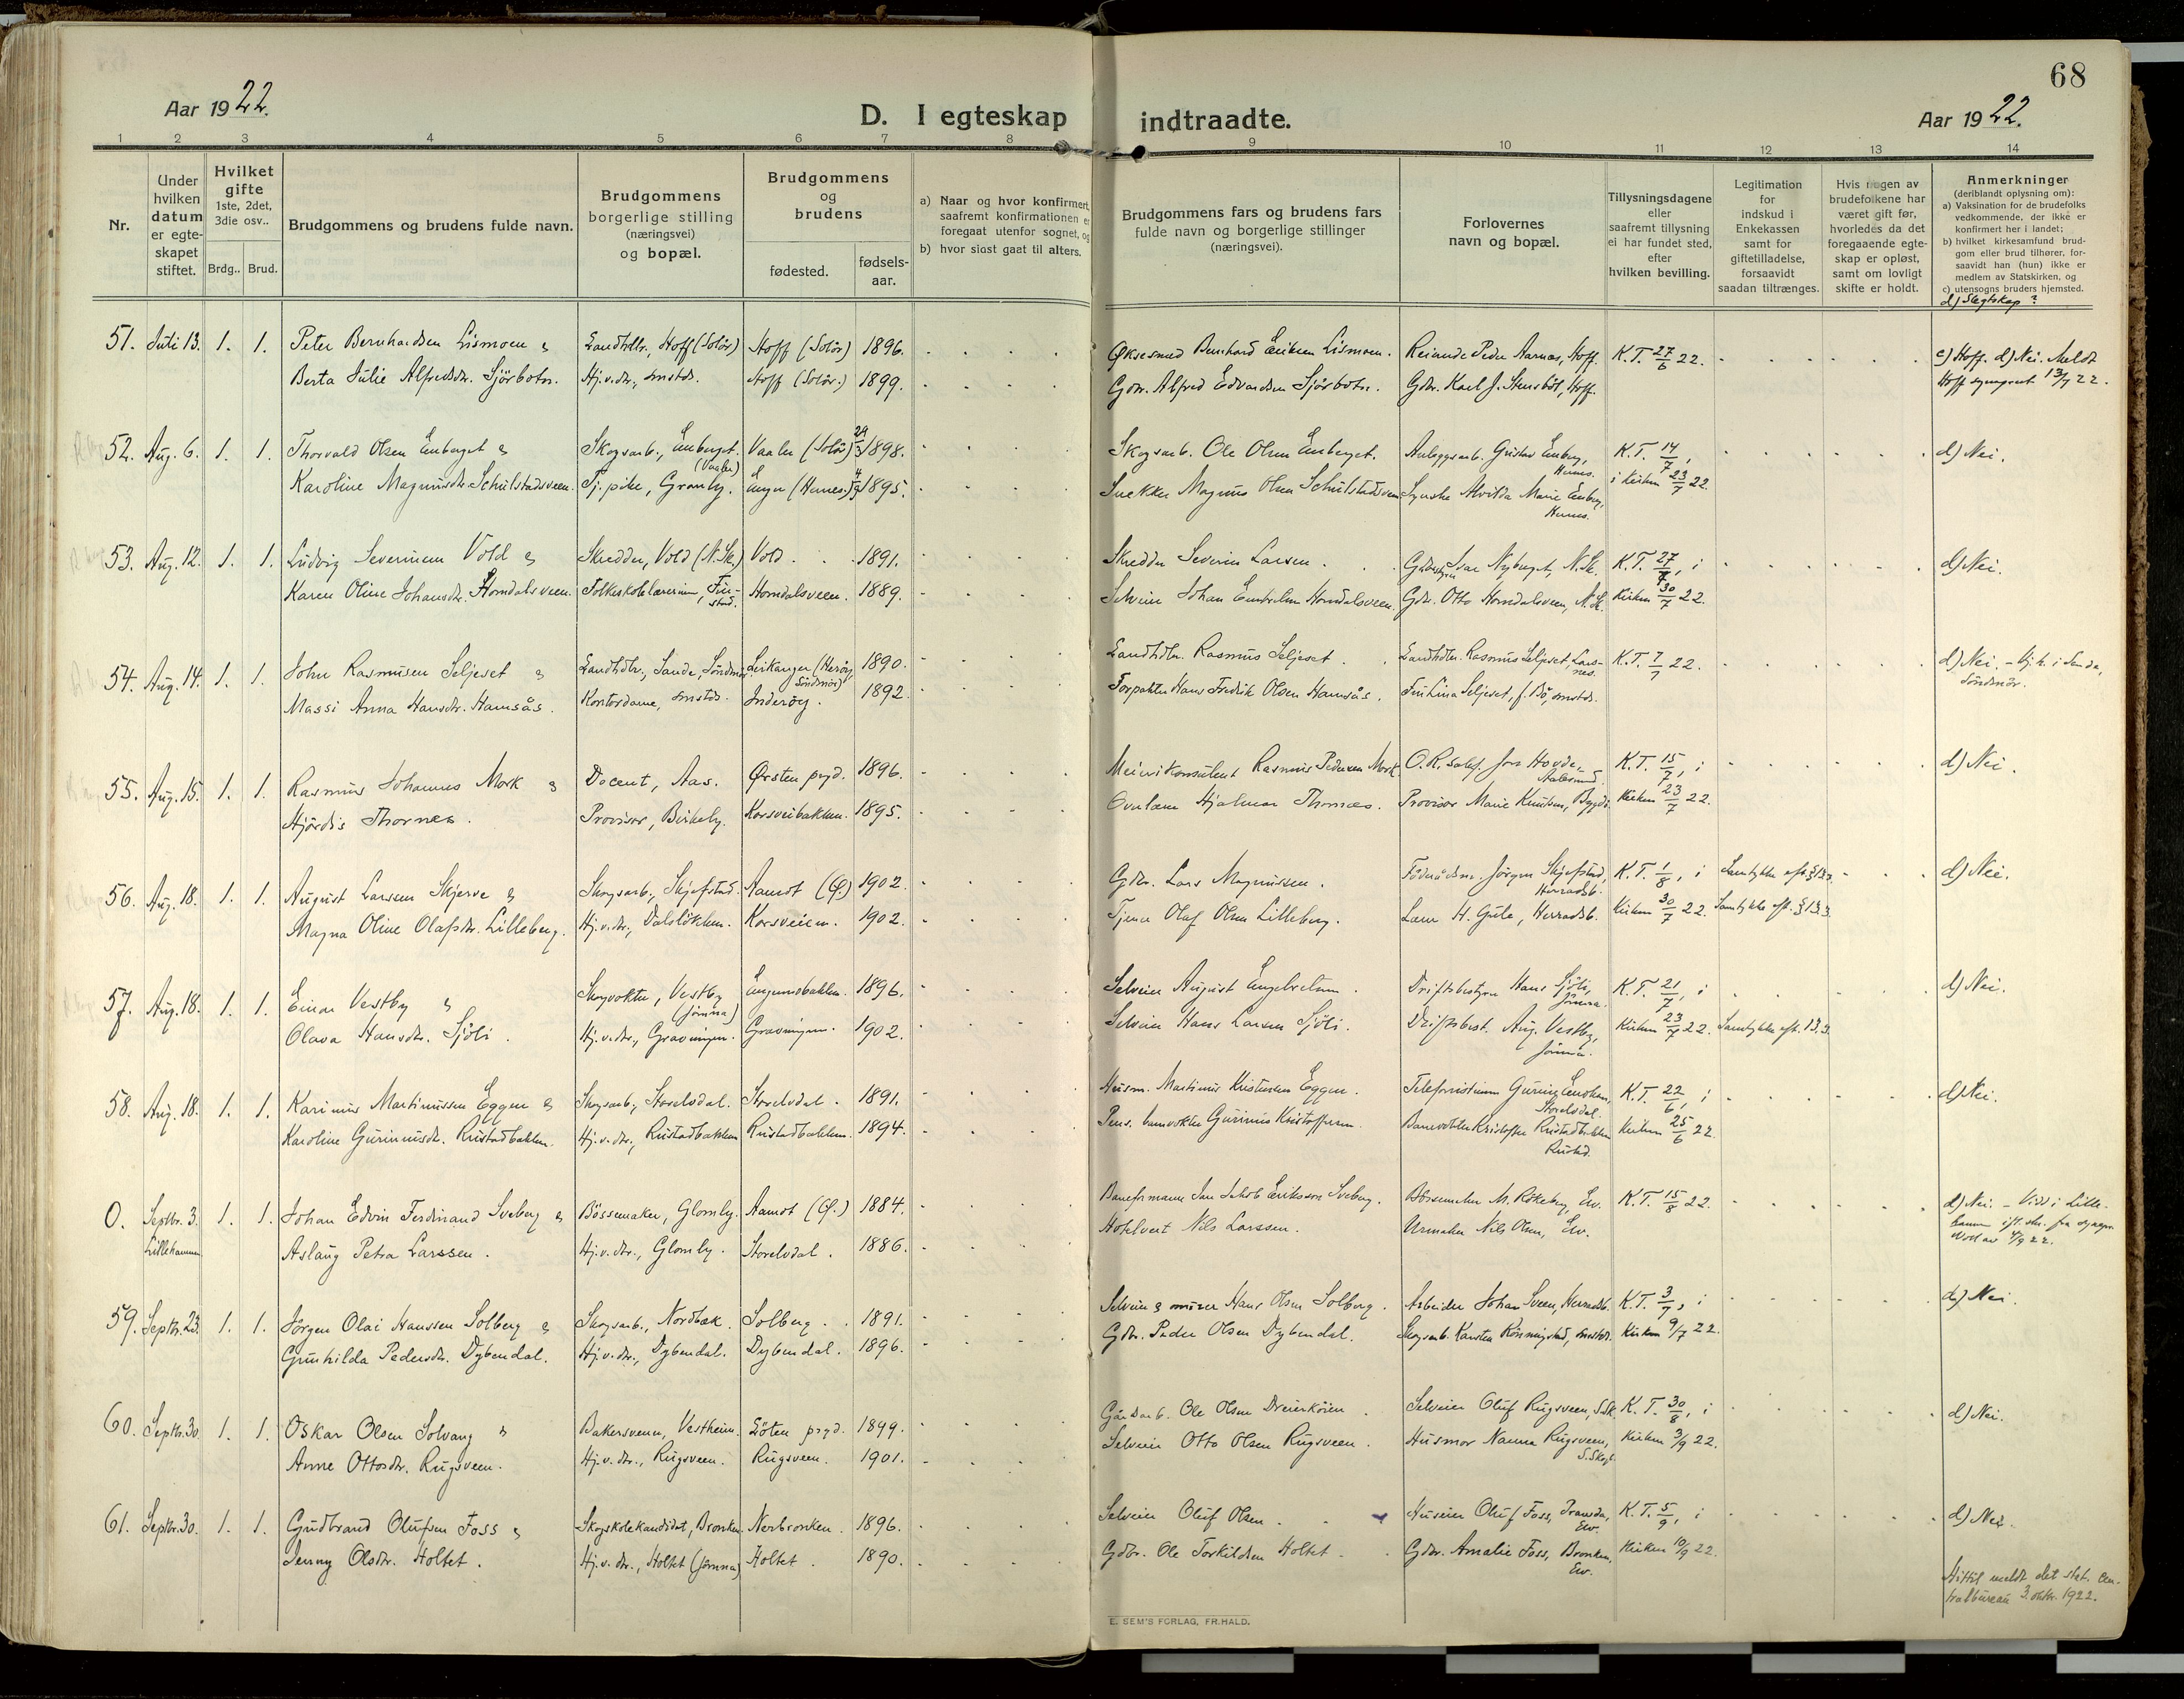 68
Aar 1922.
D. I egteskap indtraadte.
Aar 1922.
1 2 3 4 5 6 7 8 9 10 11 12 13 14
Nr.
Under hvilken datum er egte-skapet stiftet.
Hvilket gifte 1ste, 2det, 3die osv..
Brdg.. Brud.
Brudgommens og brudens fulde navn.
Brudgommens borgerlige stilling (næringsvei) og bopæl.
Brudgommens og brudens
fødested.
fødsels-aar.
a) Naar og hvor konfirmert, saafremt konfirmationen er foregaat utenfor sognet, og
b) hvor sidst gaat til alters.
Brudgommens fars og brudens fars fulde navn og borgerlige stillinger (næringsvei).
Forlovernes navn og bopæl.
Tillysningsdagene eller saafremt tillysning ei har fundet sted, efter hvilken bevilling.
Legitimation for indskud i Enkekassen samt for giftetilladelse, forsaavidt saadan tiltrænges.
Hvis nogen av brudefolkene har været gift før, hvorledes da det foregaaende egte-skap er opløst, samt om lovligt skifte er holdt.
Anmerkninger (deriblandt oplysning om):
a) Vaksination for de brudefolks vedkommende, der ikke er konfirmert her i landet;
b) hvilket kirkesamfund brud-gom eller brud tilhører, for-saavidt han (hun) ikke er medlem av Statskirken, og
c) utensogns bruders hjemsted.
d) Slegtskap?
51. Juli 13. 1. 1. Peter Bernhardsen Lismoen & Landhdlr., Hoff (Solør) Hoff (Solør) 1896. Øksesmed Bernhard Eriksen Lismoen. Reisende Peder Aarnes, Hoff. K.T. 27/6 22. c) Hoff. d) Nei. Meldt
Berta Julie Alfredsdr. Sjörbotn. Hj.v.dr., smstds. Hoff (Solør.) 1899. Gdbr. Alfred Edvardsen Sjörbotn. Gdbr. Karl J. Stensböl, Hoff. Hoff sogneprest 13/7 22.
52. Aug. 6. 1. 1. Thorvald Olsen Emberget & Skogsarb., Emberget. (Vaaler) Vaaler (Solør) 29/3 1898. Skogsarb. Ole Olsen Emberget. Anleggsarb. Gustav Emberg, Hernes. K.T. 14/7, d) Nei.
Karoline Magnusdr. Schulstadsveen. Tj.pike, Grønby. Enger (Hernes) 4/9 1895. Snekker Magnus Olsen Schulstadsveen Syerske Alvilda Marie Emberg, Hernes. i Kirken 23/7 22.
53. Aug. 12. 1. 1. Ludvig Severinsen Vold & Skredder, Vold (N.Sk.) Vold. 1891. Skredder Severin Larsen. Ivar Nyberget, N.Sk. K.T. 27/7, i d) Nei.
Karen Oline Johansdr. Horndalsveen. Folkeskolelærerinne, Finstad. Horndalsveen. 1889. Selveier Johan Embretsen Horndalsveen. Gdbr. Otto Horndalsveen, N.Sk. Kirken 30/7 22.
54. Aug. 14. 1. 1. John Rasmusen Seljeset & Landhdlr., Sande, Söndmør. Leikanger (Herøy, Söndmör) 1890. Landhdlr. Rasmus Seljeset. Landhdlr. Rasmus Seljeset, Larsnes. K.T. 7/7 22. d) Nei. - Hj.h. i Sande, Söndmör.
Massi Anna Hansdr. Hamsås. Kontordame, smstds. Inderøy. 1892. Forpakter Hans Fredrik Olsen Hamsås. Fru Lina Seljeset, f. Bö, smstds.
55. Aug. 15. 1. 1. Rasmus Johannes Mork & Docent, Aas. Ørsten prgd. 1896. Meierikonsulent Rasmus Pedersen Mork. O.R.saksf. Jon Hovde, Aalesund. K.T. 15/7, i d) Nei.
Hjördis Thornes. Provisor, Birkeby. Korsveibakken. 1895. Overlærer Hjalmar Thornæs. Provisor Marie Knutsen, Bygdö. Kirken 23/7 22.
56. Aug. 18. 1. 1. August Larssen Skjerve & Skogsarb., Skjefstad. Aamot (Ø.) 1902. Gdbr. Lars Magnussen. Föderådsm. Jörgen Skjefstad, Herradsb. K.T. 1/8, i Samtykke eft. § 13.3. d) Nei.
Magna Oline Olafsdr. Lilleberg. Hj.v.dr., Dalslökken. Korsveien. 1902. Tjener Olaf Olsen Lilleberg. Lærer H. Gule, Herradsb. Kirken 30/7 22. Samtykke eft. § 13.3.
57. Aug. 18. 1. 1. Einar Vestby & Skogvokter, Vestby (Jömna) Engumsbakken. 1896. Selveier August Engebretsen. Driftsbestyrer Hans Sjöli, Jömna. K.T. 21/7, i d) Nei.
Olava Hansdr. Sjöli. Hj.v.dr., Gravningen. Gravningen. 1902. Selveier Hans Larsen Sjöli. Driftsbest. Aug. Vestby, Jömna. Kirken 23/7 22. Samtykke eft. 13.3.
58. Aug. 18. 1. 1. Karinus Martinussen Eggen & Skogsarb., Storelvdal. Storelvdal. 1891. Husm. Martinus Kristiansen Eggen. Telefonistinne Gunine Evensen, Storelvdal. K.T. 22/6, i d) Nei.
Karoline Gurinusdr. Rustadbakken. Hj.v.dr., Rustadbakken Rustadbakken. 1894. Pens. banevokter Gurinius Kristoffersen. Banevokter Kristoffer Rustadbakken Rustad. Kirken 25/6 22.
0. Septbr. 3. Lillehammer 1. 1. Johan Edvin Ferdinand Sveberg & Bössemaker, Glomby. Aamot (Ø.) 1884. Baneformann Jan Jakob Eriksson Sveberg. Börsemaker M. Rökeberg, Elv. K.T. 15/8 22. d) Nei. - Viet i Lille-
Aslaug Petra Larssen. Hj.v.dr., Glomby. Storelvdal. 1886. Hotelvert Nils Larssen. Urmaker Nils Olsen, Elv. hammer ift. skr. fra sognepr. 4/9 22.
59. Septbr. 23. 1. 1. Jörgen Olai Hanssen Solberg & Skogsarb., Nordbæk. Solberg. 1891. Selveier & murer Hans Olsen Solberg. Arbeider Johan Sveen, Herradsb. K.T. 3/7, i d) Nei.
Gunhilda Pedersdr. Dybendal. Hj.v.dr., Dybendal. Dybendal. 1896. Gdbr. Peder Olsen Dybendal. Skogsarb. Karsten Rönningstad, smstds. Kirken 9/7 22.
60. Septbr. 30. 1. 1. Oskar Olsen Solvang & Bakersvenn, Vestheim. Löten prgd. 1899. Gårdarb. Ole Olsen Dreierkoien. Selveier Oluf Rugsveen, S.Sk. K.T. 30/8, i d) Nei.
Anne Ottosdr. Rugsveen. Hj.v.dr., Rugsveen. Rugsveen. 1901. Selveier Otto Olsen Rugsveen. Husmor Nanna Rugsveen, S.Skogb. Kirken 3/9 22.
61. Septbr. 30. 1. 1. Gudbrand Olufsen Foss & Skogskolekandidat, Bronken. Norbronken. 1896. Selveier Oluf Olsen. Huseier Oluf Foss, Elv. K.T. 5/9, i d) Nei.
Jenny Olsdr. Holtet. Hj.v.dr., Holtet (Jömna) Holtet. 1890. Gdbr. Ole Torkildsen Holtet. Gdbr. Amalie Foss, Bronken, Elv. Kirken 10/9 22.
Hittil meldt det stat. Cen-
tralbureau 3. oktbr. 1922.
E. SEM'S FORLAG, FR.HALD.